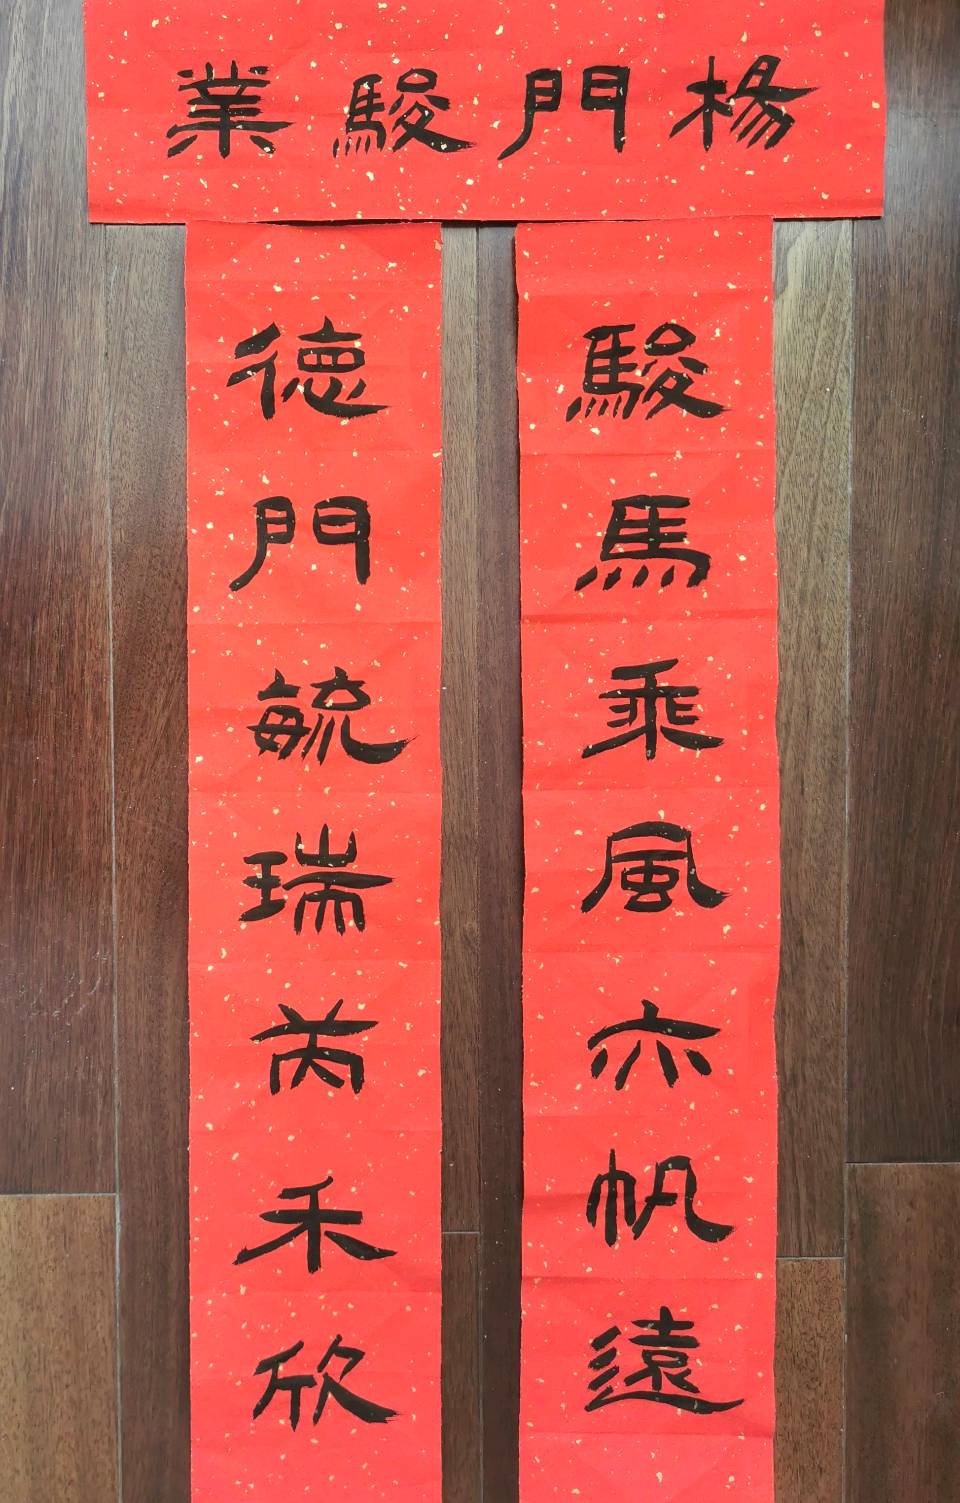 楊門駿業
駿馬乘風亦帆遠
德門毓瑞芮禾欣